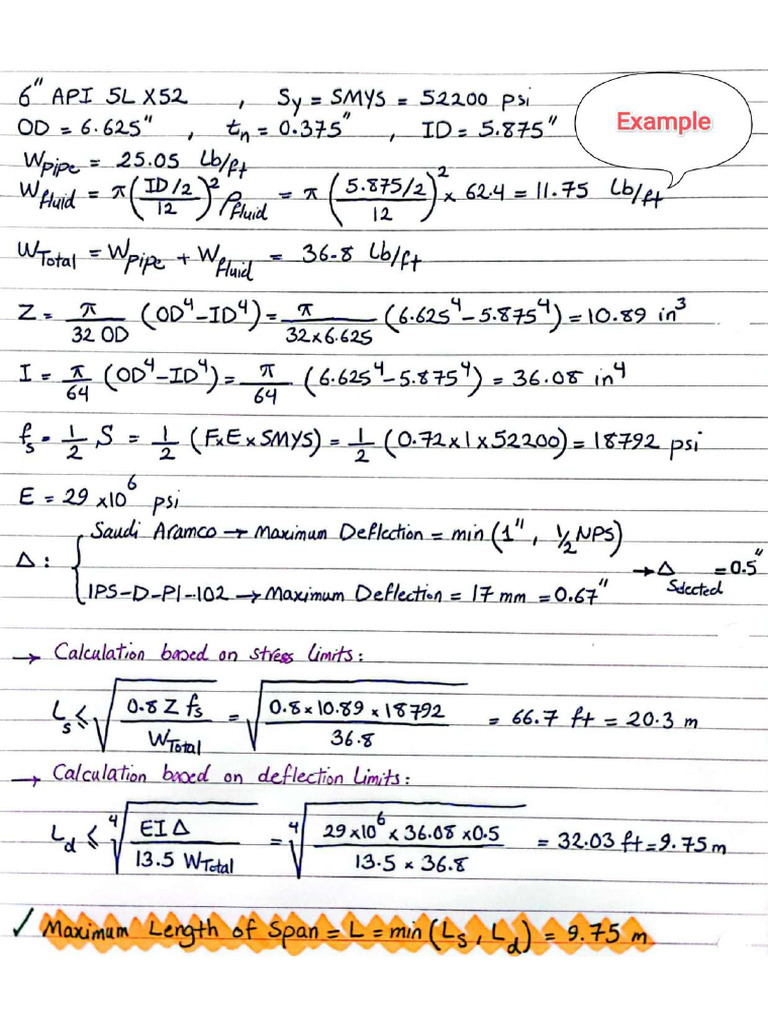 6" API 5L X52 , Sy = SMYS = 52200 psi
Example
OD = 6.625" , tn = 0.375" , ID = 5.875"
Wpipe = 25.05 Lb/ft
Wfluid = π((ID/2)/12)² ρfluid = π((5.875/2)/12)² × 62.4 = 11.75 Lb/ft
WTotal = Wpipe + Wfluid = 36.8 Lb/ft
Z = π/(32 OD) (OD⁴-ID⁴) = π/(32×6.625) (6.625⁴-5.875⁴) = 10.89 in³
I = π/64 (OD⁴-ID⁴) = π/64 (6.625⁴-5.875⁴) = 36.08 in⁴
fs = 1/2 S = 1/2 (F×E×SMYS) = 1/2 (0.72×1×52200) = 18792 psi
E = 29×10⁶ psi
Δ: { Saudi Aramco → Maximum Deflection = min (1", 1/2 NPS)
IPS-D-PI-102 → Maximum Deflection = 17 mm = 0.67"
→ Δ Selected = 0.5"
→ Calculation based on stress limits:
Ls ≤ √(0.8 Z fs / WTotal) = √(0.8×10.89×18792 / 36.8) = 66.7 ft = 20.3 m
→ Calculation based on deflection limits:
Ld ≤ ⁴√(EIΔ / 13.5 WTotal) = ⁴√(29×10⁶×36.08×0.5 / 13.5×36.8) = 32.03 ft = 9.75 m
✓ Maximum Length of Span = L = min (Ls, Ld) = 9.75 m